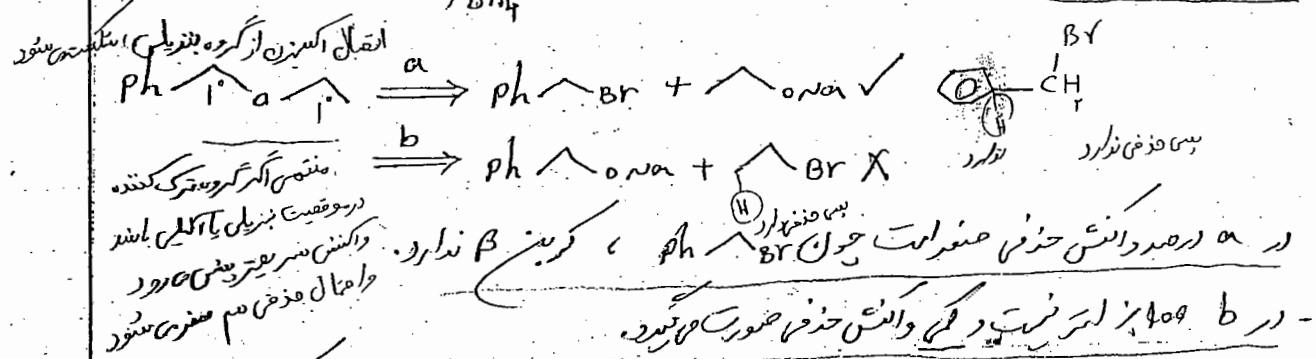 اتصال اکسیژن از گروه بنزیلی شکسته می‌شود
Ph 1° o 1° a Ph Br + ONa ✓ Br CH₂ H
ندارد پس حذفی ندارد
b Ph ONa + Br X H
پس حذفی دارد
منتهی اگر گروه ترک کننده
در موقعیت بنزیلی یا آللیلی باشد
واکنش سریعتر پیش می‌رود
و احتمال حذفی هم صفر می‌شود
در a درصد واکنش حذفی صفر است چون Ph Br ، کربن β ندارد.
- در b 100٪ اتر نیست و کمی واکنش حذفی صورت می‌گیرد.